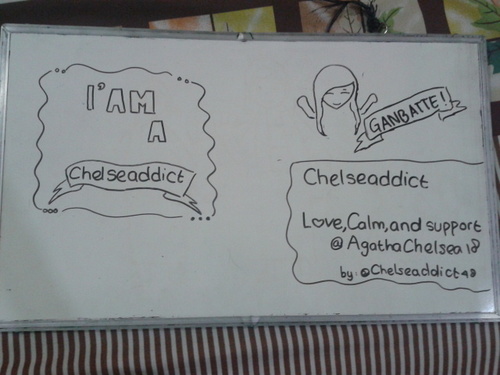 I'AM
A
Chelseaddict
GANBATTE!
Chelseaddict
Love,Calm,and support
@AgathaChelsea18
by:@Chelseaddict48